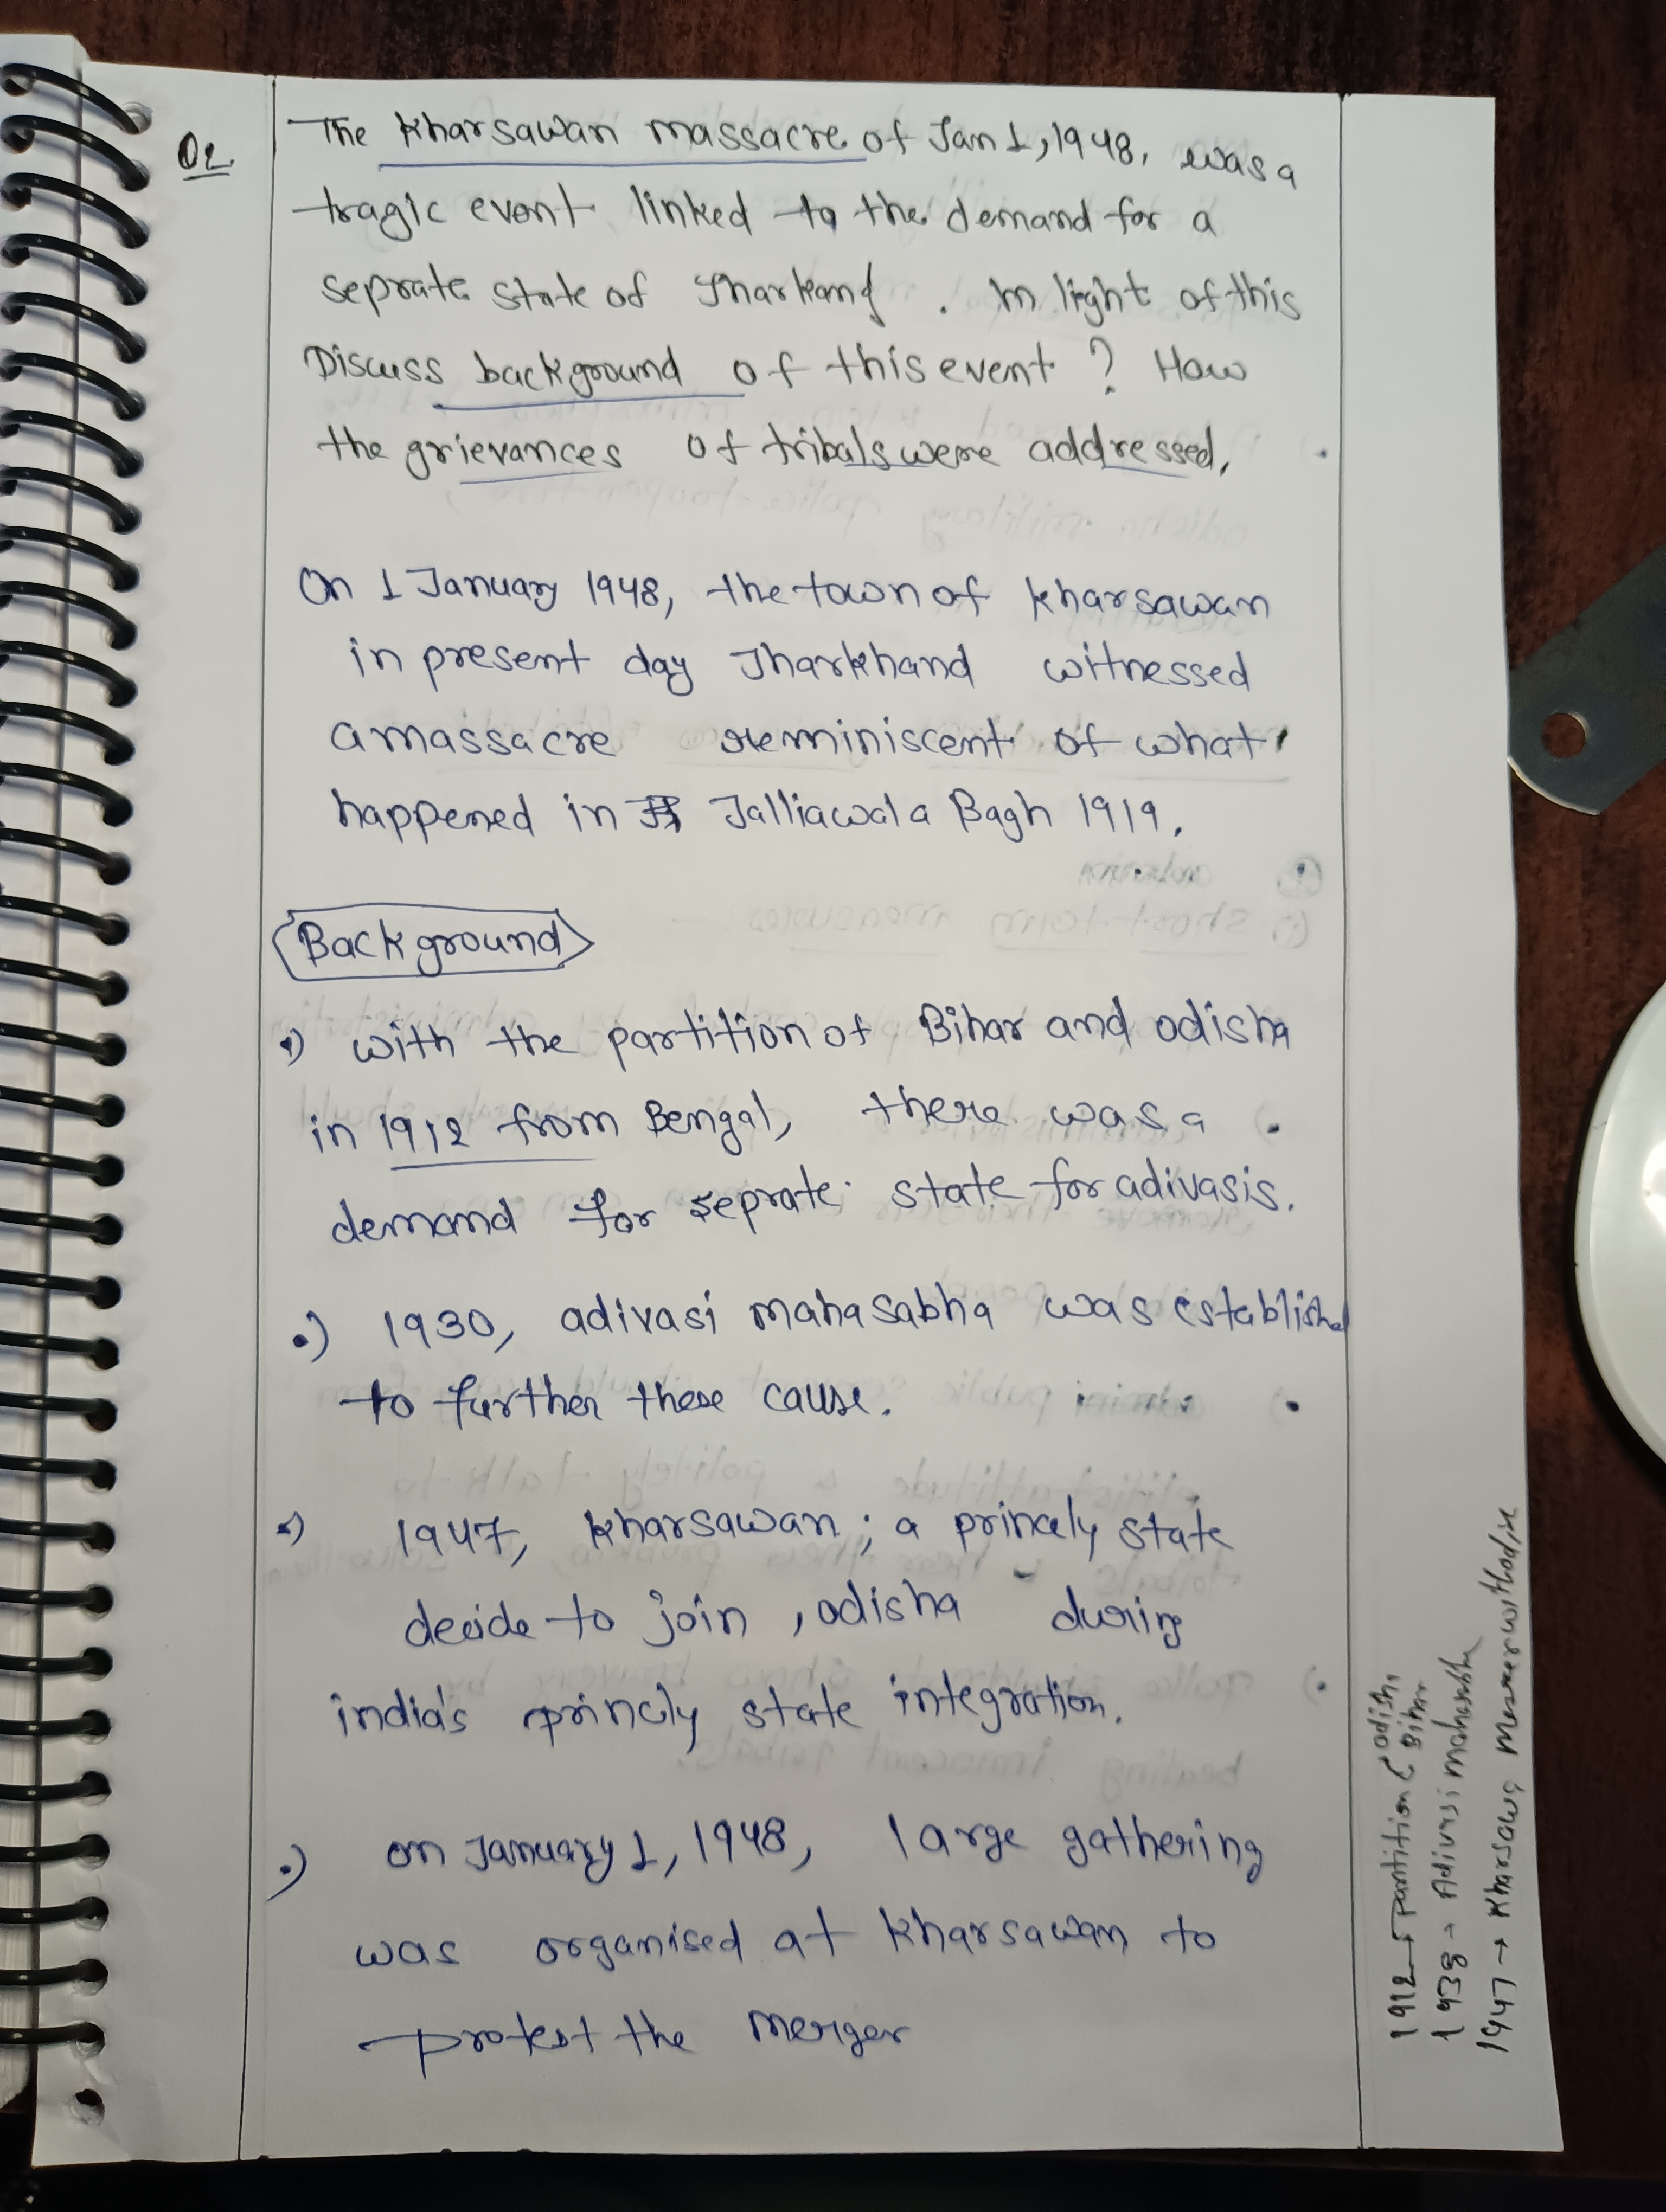 Q2
The Kharsawan massacre of Jan 1, 1948, was a
tragic event linked to the demand for a
seprate state of Jharkand . In light of this
Discuss background of this event ? How
the grievances of tribals were addressed,
On 1 January 1948, the town of Kharsawan
in present day Jharkhand witnessed
a massacre reminiscent of what
happened in Jalliawala Bagh 1919.
Background
with the partition of Bihar and odisha
in 1912 from Bengal, there was a
demand for seprate state for adivasis.
1930, adivasi mahasabha was established
to further these cause.
1947, Kharsawan; a princely state
decide to join , odisha during
india's princly state integration.
on January 1, 1948, large gathering
was organised at Kharsawan to
protest the merger
1912 → partition odisha Bihar
1938 → Adivasi mahasabha
1947 → Kharsawa